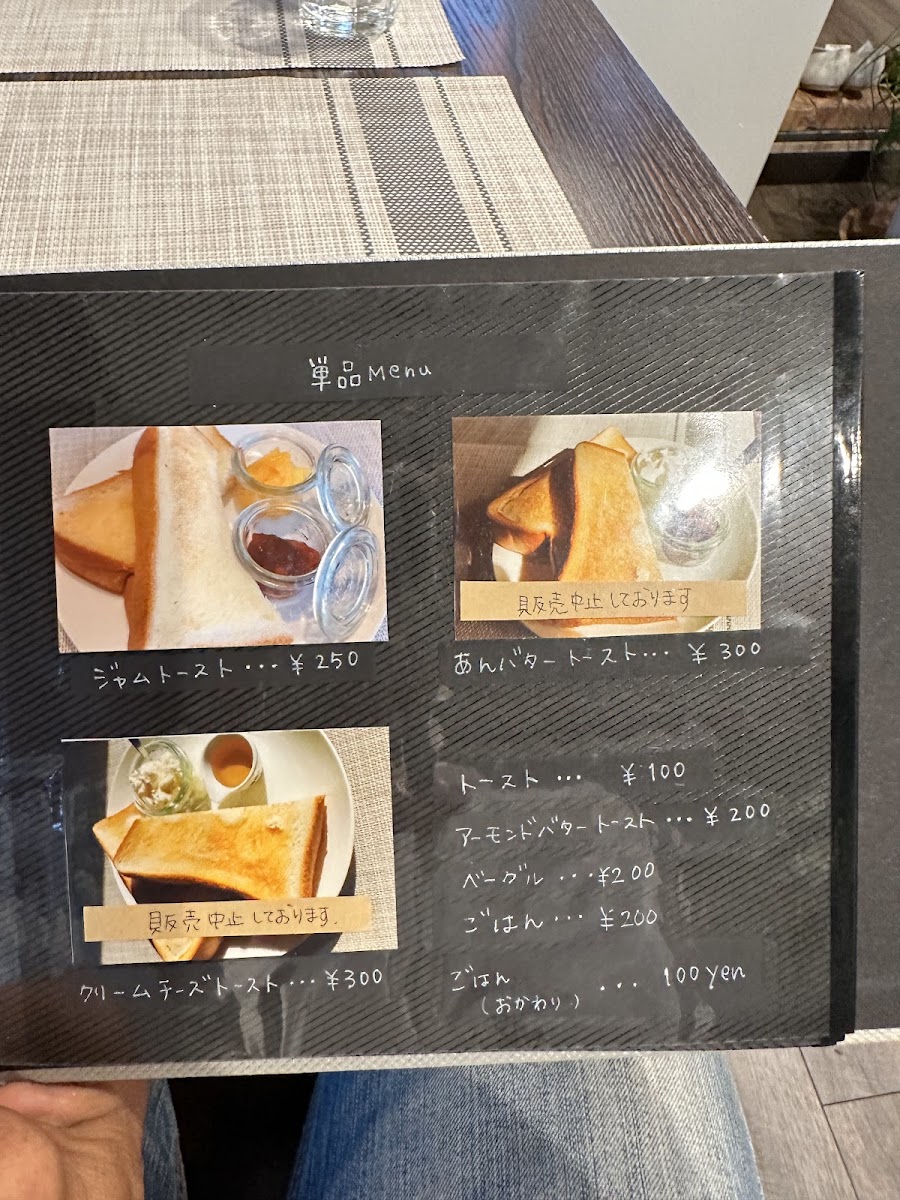 単品Menu
販売中止しております
ジャムトースト・・・¥250
あんバタートースト・・・ ¥300
販売中止しております.
クリームチーズトースト・・・¥300
トースト・・・ ¥100
アーモンドバタートースト・・・¥200
ベーグル・・・¥200
ごはん・・・¥200
ごはん
(おかわり)・・・100yen